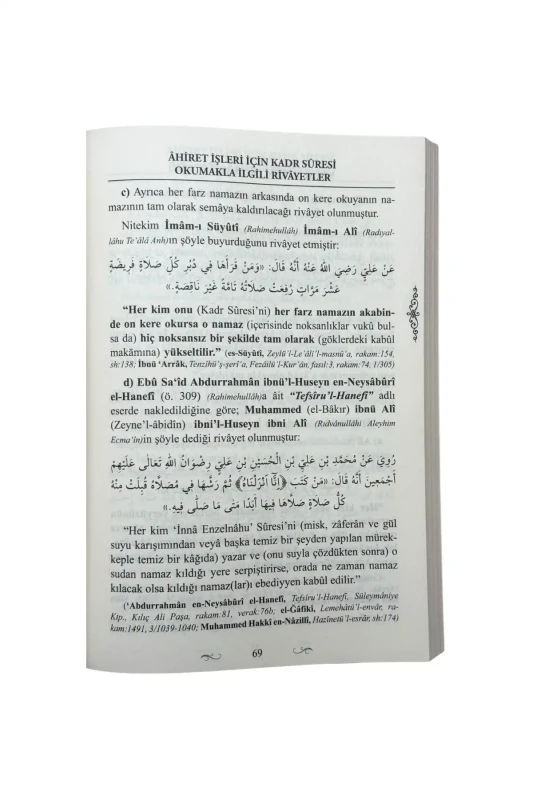 ÂHİRET İŞLERİ İÇİN KADR SÛRESİ
OKUMAKLA İLGİLİ RİVÂYETLER
c) Ayrıca her farz namazın arkasında on kere okuyanın na-
mazının tam olarak semâya kaldırılacağı rivâyet olunmuştur.
Nitekim İmâm-ı Süyûtî (Rahimehullâh) İmâm-ı Alî (Radıyal-
lâhu Te'âlâ Anh)ın şöyle buyurduğunu rivâyet etmiştir:
عَنْ عَلِيٍّ رَضِيَ اللهُ عَنْهُ أَنَّهُ قَالَ: «وَمَنْ قَرَأَهَا فِي دُبُرِ كُلِّ صَلَاةٍ فَرِيضَةٍ
عَشْرَ مَرَّاتٍ رُفِعَتْ صَلَاتُهُ تَامَّةً غَيْرَ نَاقِصَةٍ.»
“Her kim onu (Kadr Sûresi'ni) her farz namazın akabin-
de on kere okursa o namaz (içerisinde noksanlıklar vukû bul-
sa da) hiç noksansız bir şekilde tam olarak (göklerdeki kabûl
makâmına) yükseltilir.” (es-Süyûtî, Zeylü'l-Le'âli'l-masnû'a, rakam:154,
sh:138; İbnü 'Arrâk, Tenzîhü'ş-şerî'a, Fezâilü'l-Kur'ân, fasıl:3, rakam:74, 1/305)
d) Ebû Sa'îd Abdurrahmân ibnü'l-Huseyn en-Neysâbûrî
el-Hanefî (ö. 309) (Rahimehullâh)a âit “Tefsîru'l-Hanefî” adlı
eserde nakledildiğine göre; Muhammed (el-Bâkır) ibnü Alî
(Zeyne'l-âbidîn) ibni'l-Huseyn ibni Alî (Rıdvânullâhi Aleyhim
Ecma'în)in şöyle dediği rivâyet olunmuştur:
رُوِيَ عَنْ مُحَمَّدِ بْنِ عَلِيِّ بْنِ الْحُسَيْنِ بْنِ عَلِيٍّ رِضْوَانُ اللهِ تَعَالَى عَلَيْهِمْ
أَجْمَعِينَ أَنَّهُ قَالَ: «مَنْ كَتَبَ ﴿إِنَّا أَنْزَلْنَاهُ﴾ ثُمَّ رَشَّهَا فِي مُصَلَّاهُ قُبِلَتْ مِنْهُ
كُلُّ صَلَاةٍ صَلَّاهَا فِيهَا أَبَدًا مَتَى مَا صَلَّى فِيهِ.»
“Her kim ‘İnnâ Enzelnâhu’ Sûresi'ni (misk, zâferân ve gül
suyu karışımından veyâ başka temiz bir şeyden yapılan mürek-
keple temiz bir kâğıda) yazar ve (onu suyla çözdükten sonra) o
sudan namaz kıldığı yere serpiştirirse, orada ne zaman namaz
kılacak olsa kıldığı namaz(lar)ı ebediyyen kabûl edilir.”
('Abdurrahmân en-Neysâbûrî el-Hanefî, Tefsîru'l-Hanefî, Süleymâniye
Ktp., Kılıç Ali Paşa, rakam:81, verak:76b; el-Ğâfikî, Lemehâtü'l-envâr, ra-
kam:1491, 3/1039-1040; Muhammed Hakkî en-Nâzillî, Hazînetü'l-esrâr, sh:174)
69